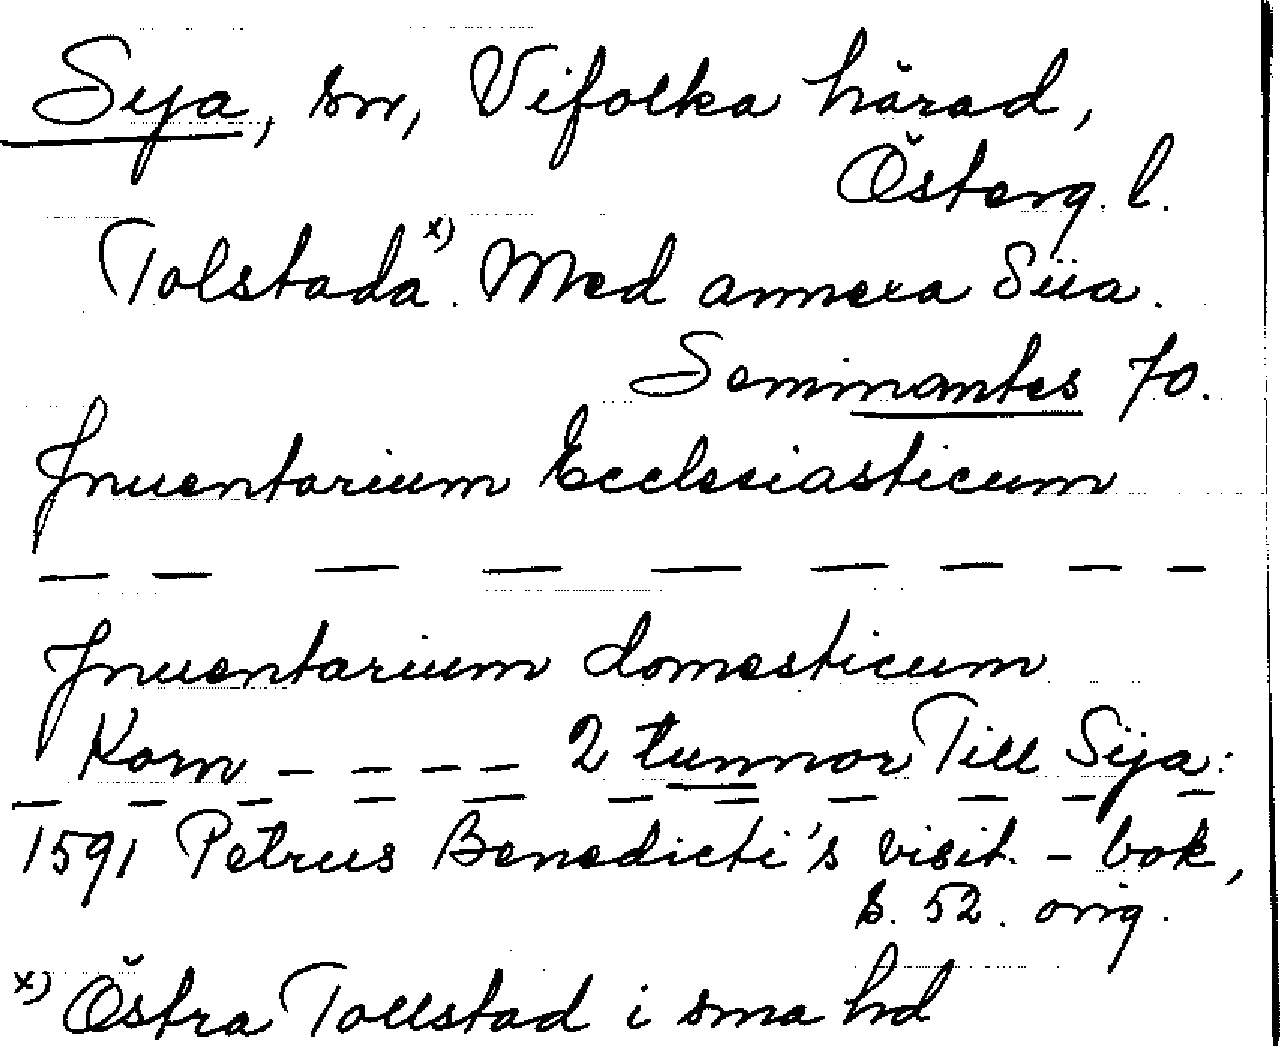 Sya, sn, Vifolka härad,
Österg. l.
Tolstada x). Med annexa Siia.
Seminantes 70.
Inuentarium Ecclesiasticum
— — — — — — — — —
Inuentarium domesticum
Korn _ _ _ _ 2 tunnor Till Sÿa:
— — — — — — — — — — —
1591 Petrus Benedicti's visit. - bok,
s. 52. orig.
x) Östra Tollstad i sma hd